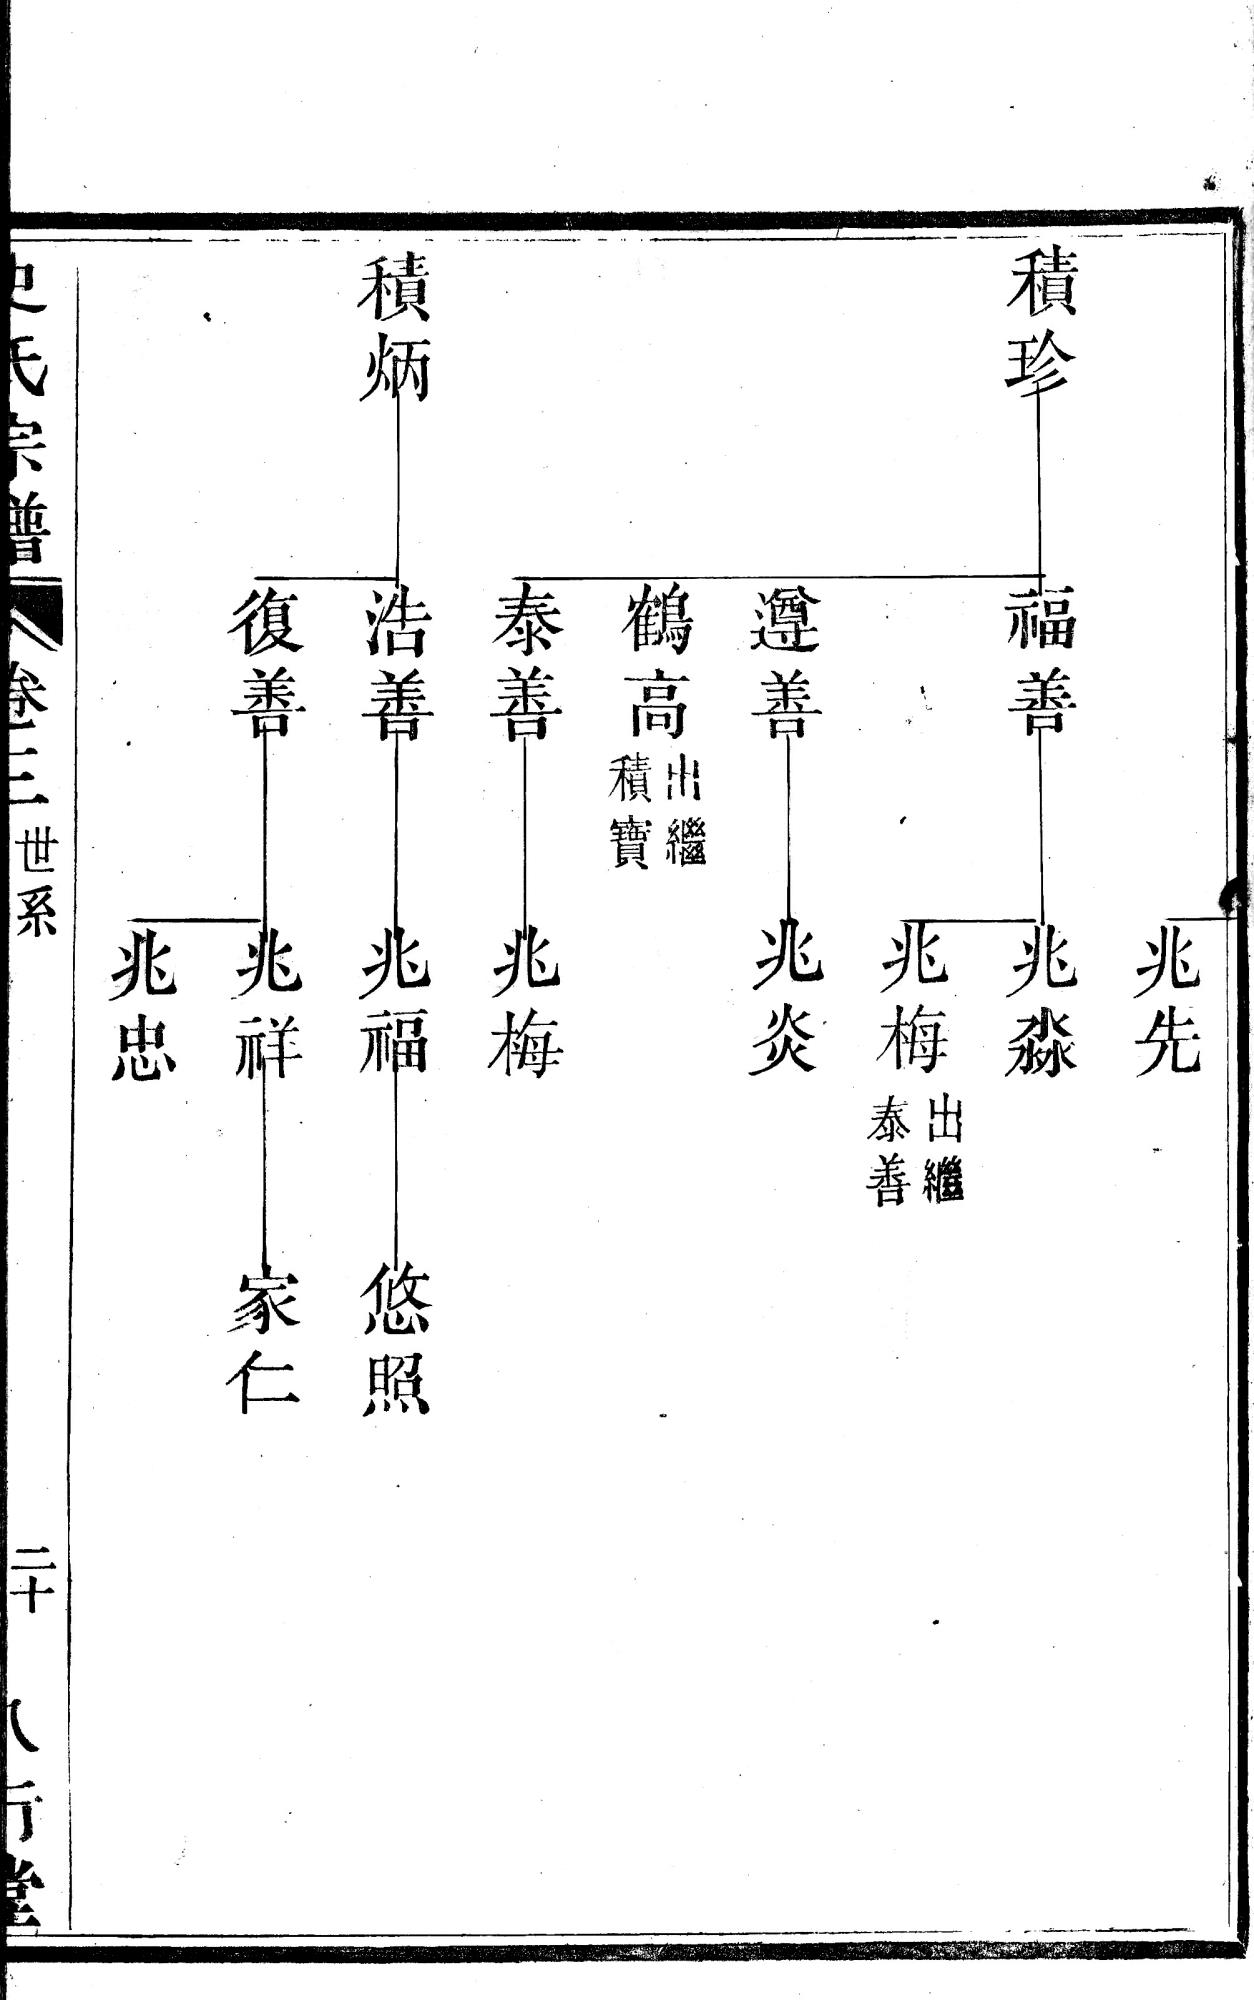 兆先
積珍
福善
兆淼
兆梅
出繼
泰善
遵善
兆炎
鶴高
出繼
積寶
泰善
兆梅
積炳
浩善
兆福
悠照
復善
兆祥
家仁
兆忠
史氏宗譜
卷三
世系
二十
八行堂